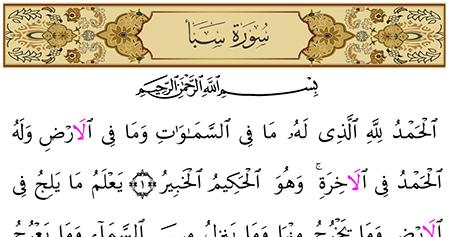 سُورَةُ سَبَأ
بِسْمِ اللَّهِ الرَّحْمَٰنِ الرَّحِيمِ
اَلْحَمْدُ لِلّٰهِ الَّذ۪ى لَهُ مَا فِى السَّمٰوَاتِ وَمَا فِى الْاَرْضِ وَلَهُ
الْحَمْدُ فِى الْاٰخِرَةِۚ وَهُوَ الْحَك۪يمُ الْخَب۪يرُ ﴿١﴾ يَعْلَمُ مَا يَلِجُ فِى
الْاَرْضِ وَمَا يَخْرُجُ مِنْهَا وَمَا يَنْزِلُ مِنَ السَّمَٓاءِ وَمَا يَعْرُجُ